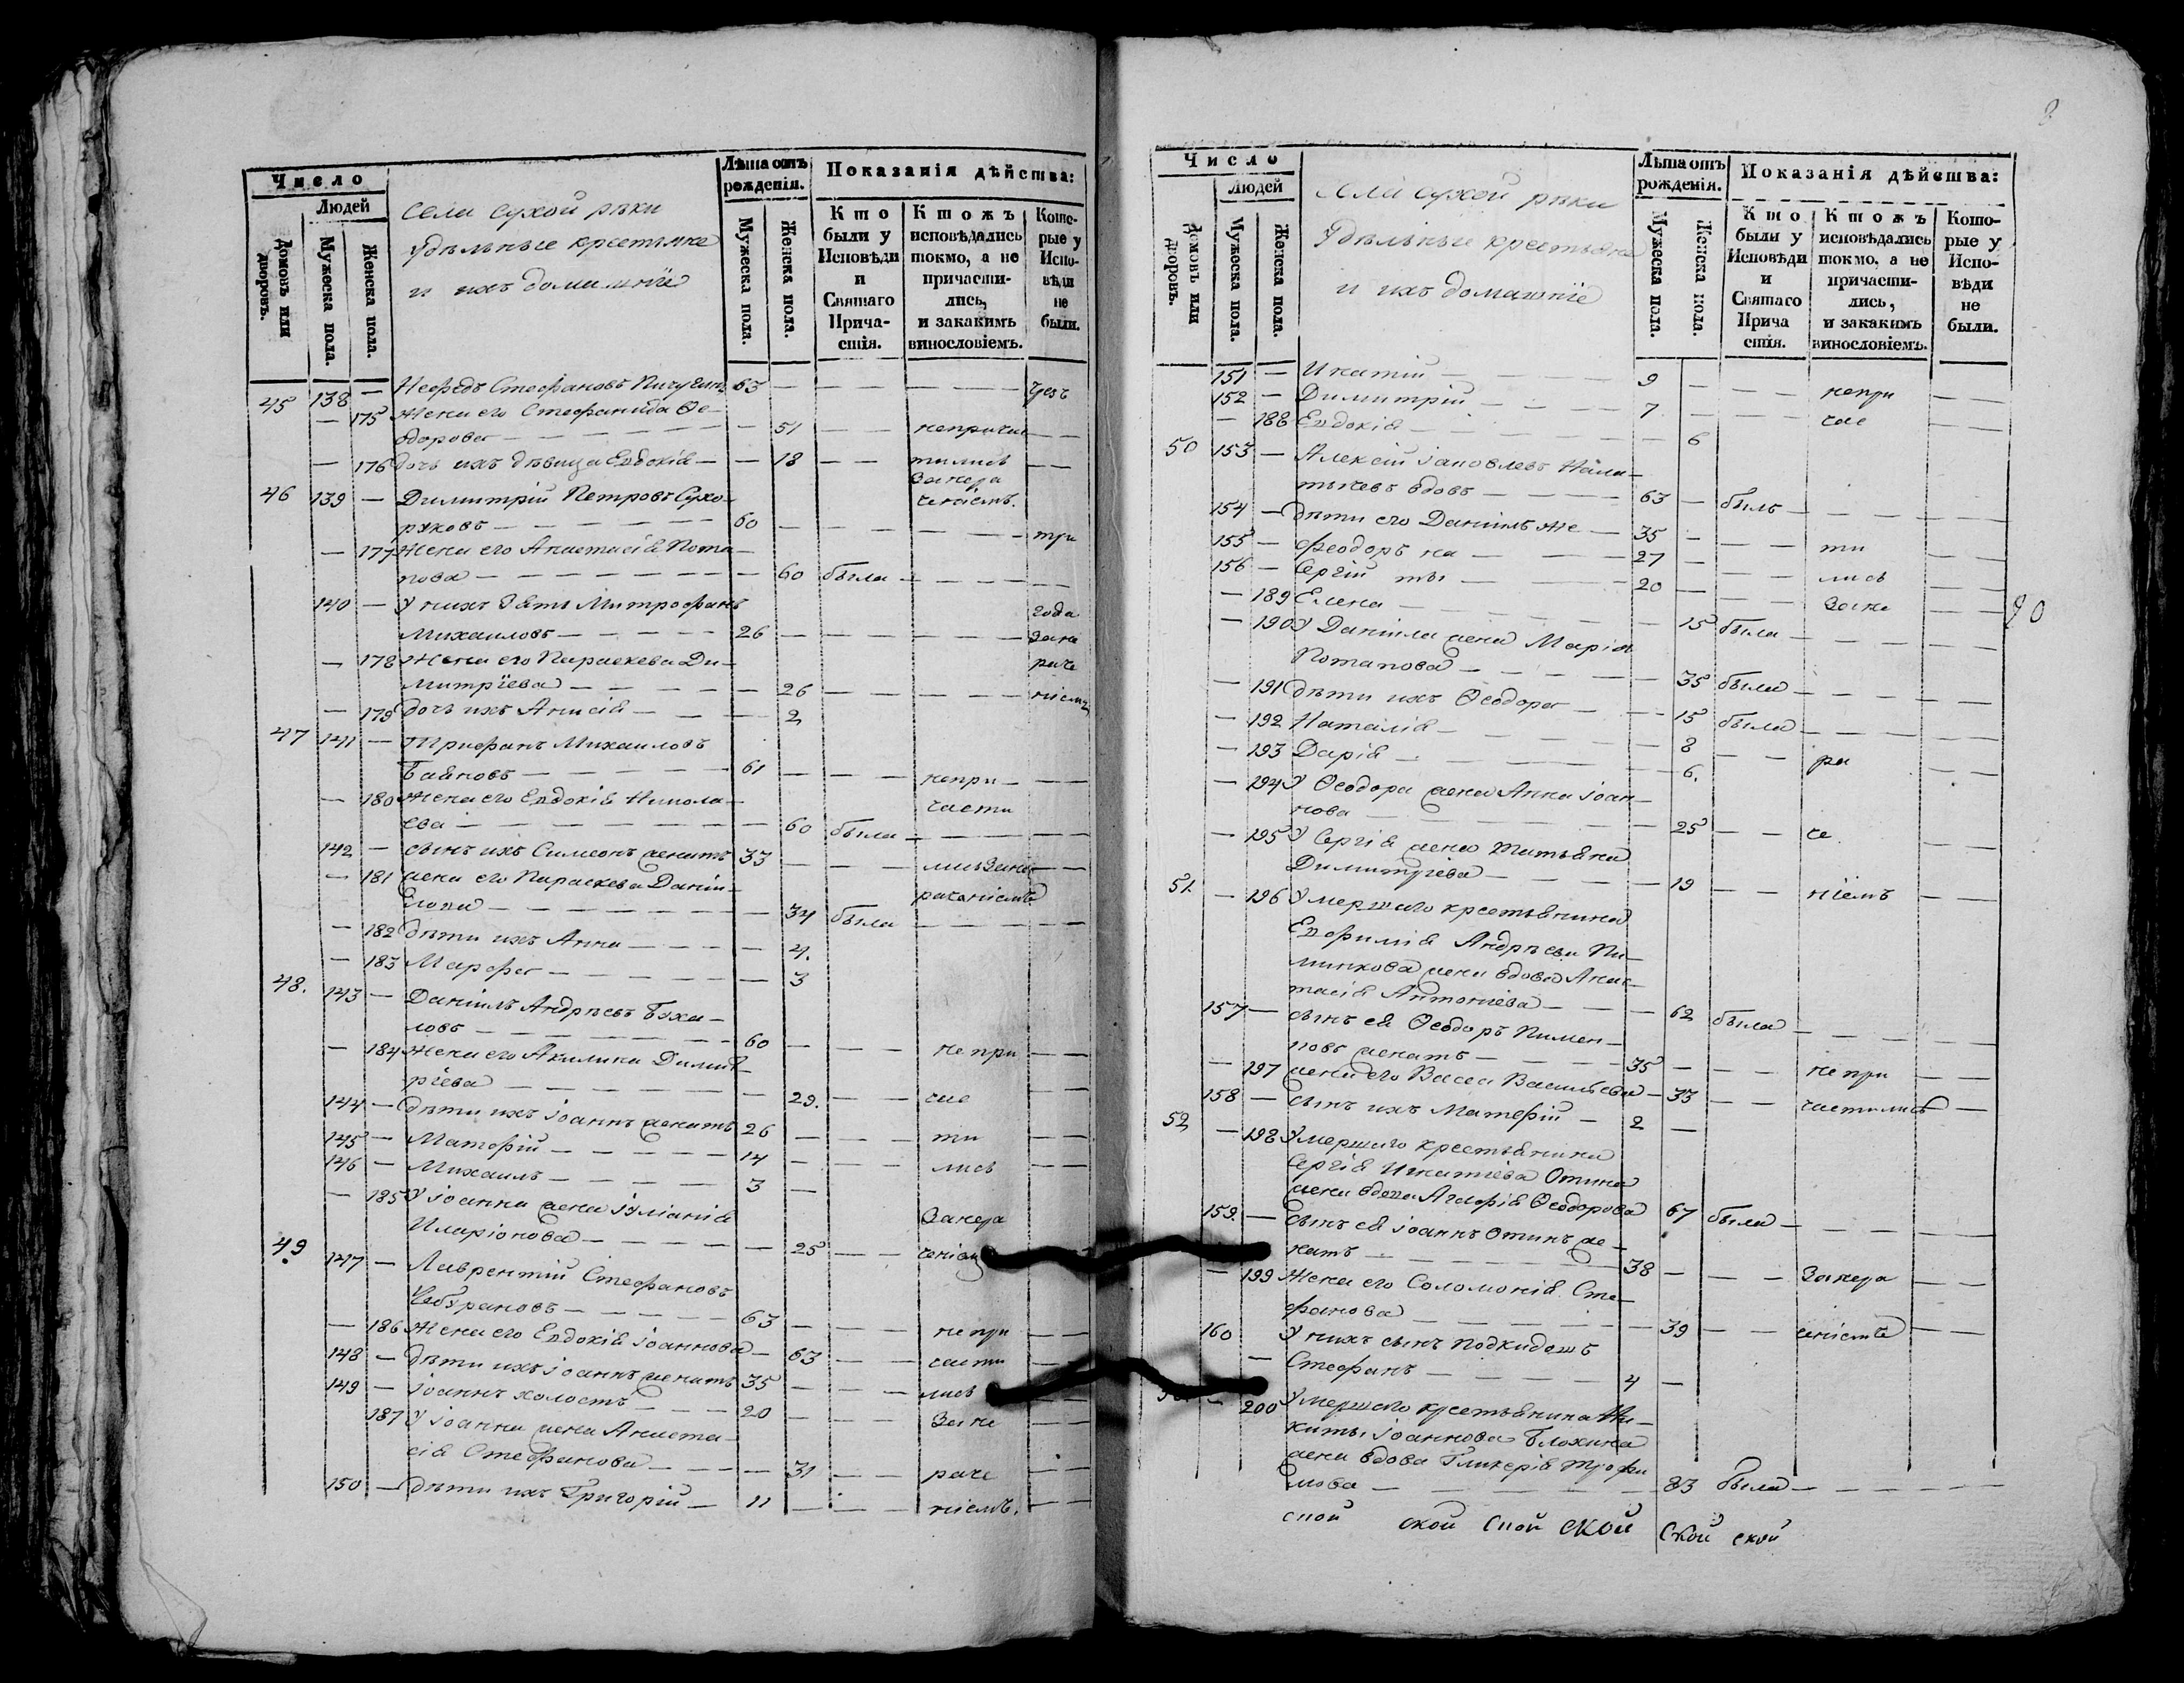 Число
Людей
Домовъ или дворовъ.
Мужеска пола.
Женска пола.
села сухой рѣки
удѣльные крестьяне
и ихъ домашніе
Лѣта отъ рожденія.
Мужеска пола.
Женска пола.
Показанія дѣйства:
Кто были у Исповѣди и Святаго Причастія.
Ктожъ исповѣдались токмо, а не причастились, и закакимъ винословіемъ.
Которые у Исповѣди не были.
45 138 — Стефановъ 63 — — — — —
— 175 Жена его Стефанида Ѳе—
дорова — — — — — 51 — — непричас — —
— 176 дочь ихъ дѣвица Евдокія — — 18 — — тились — —
занера
46 139 — Димитрій Петровъ Сухо— ченіемъ.
руковъ — — — — — 60 — — — — — три
— 177 Жена его Анастасія Пота—
пова — — — — — 60 была — — — — —
140 — У нихъ зять Митрофанъ года
Михаиловъ — — — — 26 — — — — — зане
— 178 Жена его Параскева Ди— раче
митріева — — — — — 26 — — — — — ніемъ
— 179 дочь ихъ Анисія — — — 2
47 141 — Трифанъ Михаиловъ
Баяновъ — — — — 61 — — — непри — — —
— 180 Жена его Евдокія Никола— части
ева — — — — — 60 была — — — — —
142 — сынъ ихъ Симеонъ женатъ 33 — — — лись зане — —
— 181 жена его Параскева Даніи— раченіемъ
лова — — — — — 34 была — — — — —
— 182 дѣти ихъ Анна — — — — 4.
— 183 Марфа — — — — — 3
48. 143 — Даніилъ Андреевъ Буха—
ловъ — — — — — 60 — — — непри — —
— 184 Жена его Акилина Димит—
ріева — — — — — 29. — — час — —
144 — дѣти ихъ Іоаннъ женатъ 26 — — — ти — —
145 — Матфій — — — — — 14 — — — лись — —
146 — Михаилъ — — — — 3 —
— 185 У Іоанна жена Іуліанія занера
Иларіонова — — — — — 25 — — ченіемъ
49 147 — Лаврентій Стефановъ
63 — — — непри — —
— 186 Жена его Евдокія Іоаннова — 63 — — части —
148 — дѣти ихъ Іоаннъ женатъ 35 — — — лись — —
149 — Іоаннъ холостъ — — — 20 — — — зане — —
187 У Іоанна жена Анаста—
сія Стефанова — — — — 31 — — раче — —
150 — дѣти ихъ Григорій — 11 — — — ніемъ. — —
Число
Людей
Домовъ или дворовъ.
Мужеска пола.
Женска пола.
села сухой рѣки
удѣльные крестьяне
и ихъ домашніе
Лѣта отъ рожденія.
Мужеска пола.
Женска пола.
Показанія дѣйства:
Кто были у Исповѣди и Святаго Причастія.
Ктожъ исповѣдались токмо, а не причастились, и закакимъ винословіемъ.
Которые у Исповѣди не были.
151 — Игнатій — — — — 9 — — — непри — —
152 — Димитрій — — — 7 — — — час — —
— 188 Евдокія — — — — — 6
50 153 — Алексій Іаковлевъ
вдовъ — — — — 63 — былъ — — — — —
154 — дѣти его Даніилъ же — 35 — — — ти — —
155 — Феодоръ на — — — 27 — — — лись — —
156 — Сергій ты — — — 20 — — — зане — —
— 189 Елена — — — — — 15 была — — — —
90
— 190 У Даніила жена Марія
Потапова — — — — — 35 была — — — —
— 191 дѣти ихъ Ѳеодора — — 15 была — — — —
— 192 Наталія — — — — — 8 — — ра — —
— 193 Дарія — — — — — 6.
— 194 У Ѳеодора жена Анна Іоан—
нова — — — — — 25 — — че — —
— 195 У Сергія жена Татьяна
Димитріева — — — — — 19 — — ніемъ — —
51. — 196 Умершаго крестьянина
Евфимія Андреева Пи—
минкова жена вдова Анас—
тасія Антоніева — — — 62 была — — — —
157 — сынъ ея Ѳеодоръ Пимен—
ковъ женатъ — — — 35 — — — непри — —
— 197 жена его Васса Васильева — 33 — — частились —
158 — сынъ ихъ Матфій — 2 —
52 — 198 Умершаго крестьянина
Сергія Игнатіева Отина
жена вдова Агафія Ѳеодорова 67 была — — — —
159. — сынъ ея Іоаннъ Отинъ же—
натъ — — — — — 38 — — — занера — —
— 199 Жена его Соломонія Сте—
фанова — — — — — 39 — — ченіемъ — —
160 У нихъ сынъ подкидошъ
— Стефанъ — — — — 4 —
— 200 Умершаго крестьянина Ни—
киты Іоаннова Блохина
жена вдова Гликерія Трофи
мова — — — — — 83 была — — — — —
спой ской спой ской ской ской